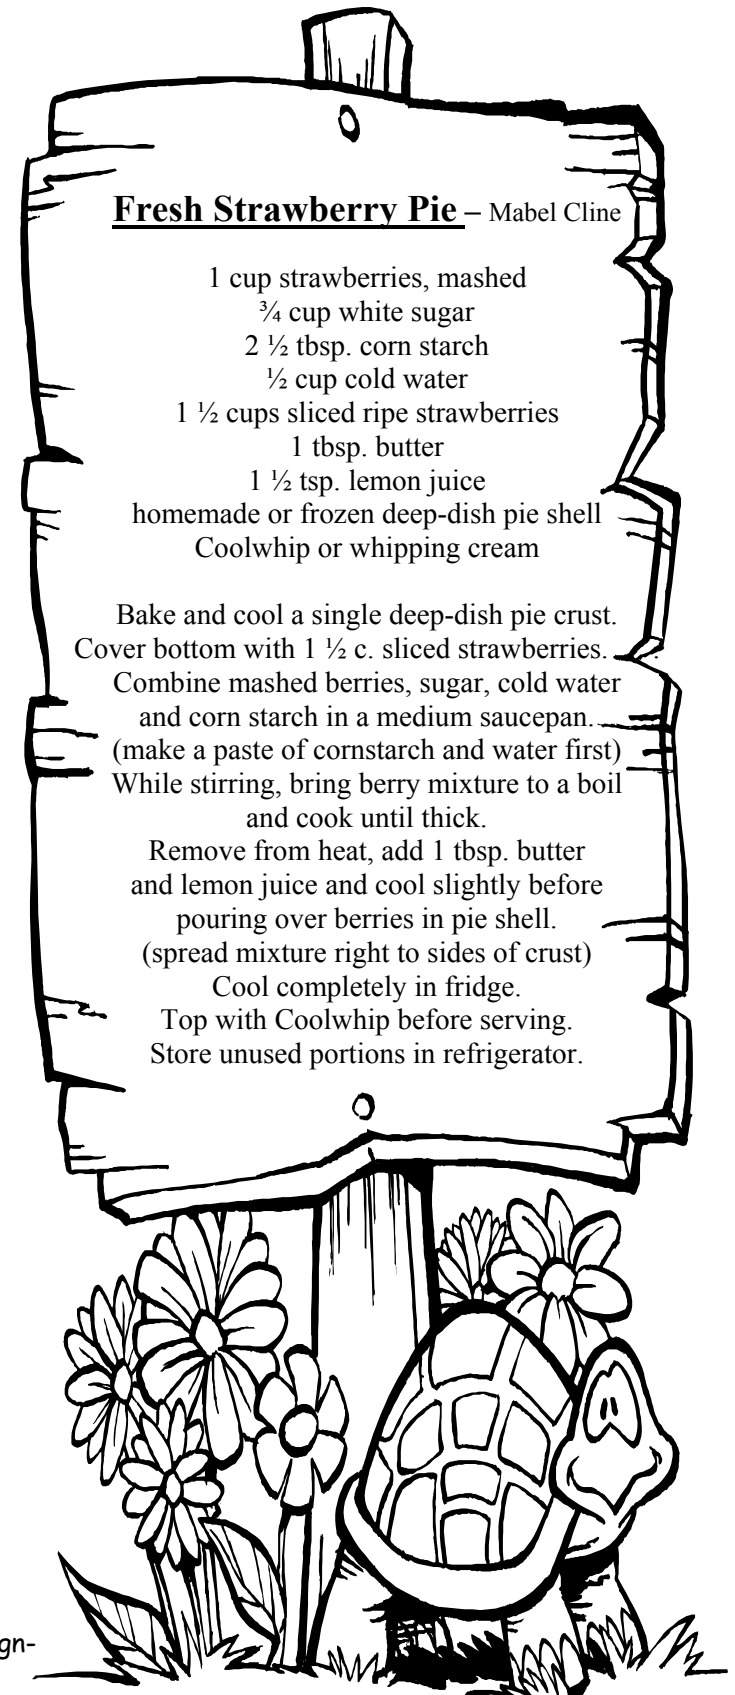 Fresh Strawberry Pie – Mabel Cline
1 cup strawberries, mashed
¾ cup white sugar
2 ½ tbsp. corn starch
½ cup cold water
1 ½ cups sliced ripe strawberries
1 tbsp. butter
1 ½ tsp. lemon juice
homemade or frozen deep-dish pie shell
Coolwhip or whipping cream
Bake and cool a single deep-dish pie crust.
Cover bottom with 1 ½ c. sliced strawberries.
Combine mashed berries, sugar, cold water
and corn starch in a medium saucepan.
(make a paste of cornstarch and water first)
While stirring, bring berry mixture to a boil
and cook until thick.
Remove from heat, add 1 tbsp. butter
and lemon juice and cool slightly before
pouring over berries in pie shell.
(spread mixture right to sides of crust)
Cool completely in fridge.
Top with Coolwhip before serving.
Store unused portions in refrigerator.
gn-